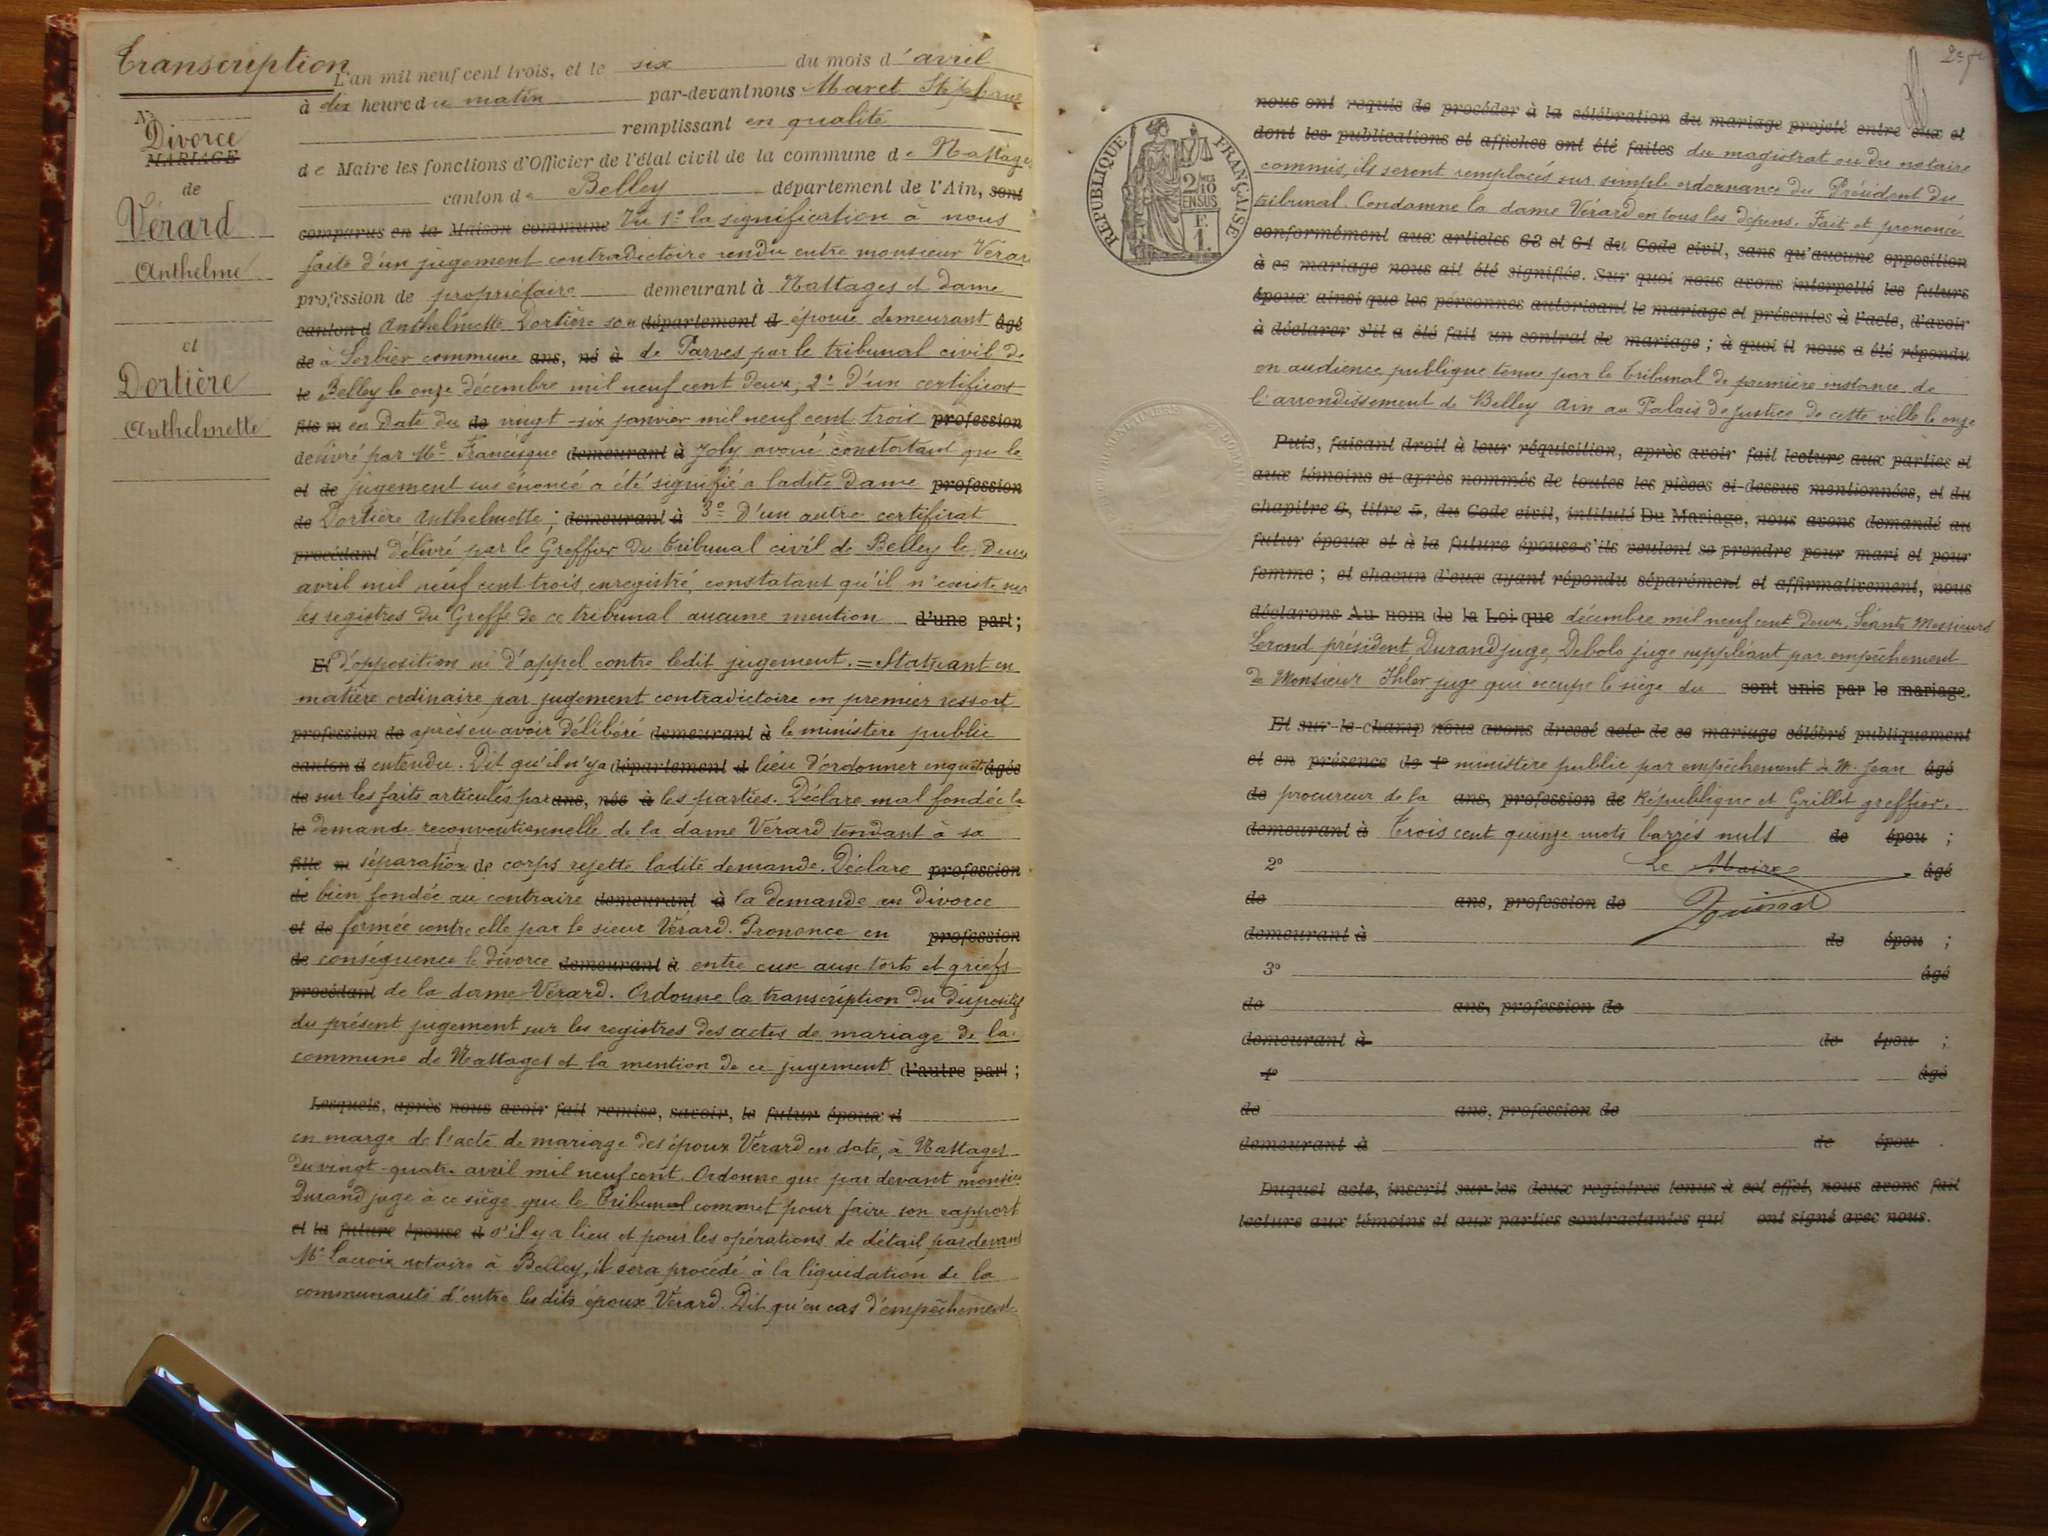 Transcription
N°
Divorce
MARIAGE
de
Vérard
Anthelme
et
Dortière
Anthelmette
L'an mil neuf cent trois, et le six du mois d'avril
à dix heure du matin par-devant nous Maret Stéphane
remplissant en qualité
de Maire les fonctions d'Officier de l'état civil de la commune de Nattages
canton de Belley département de l'Ain, sont
comparus en la Maison commune Vu 1° la signification à nous
faite d'un jugement contradictoire rendu entre monsieur Vérard
profession de propriétaire demeurant à Nattages et dame
canton d Anthelmette Dortière son département d épouse demeurant âgé
de à Sorbier commune ans, né à de Parves par le tribunal civil de
le Belley le onze décembre mil neuf cent deux; 2° D'un certificat
fils m en Date du de vingt-six janvier mil neuf cent trois profession
délivré par Me Francisque demeurant à Joly avoué constatant que le
et de jugement sus énoncé a été signifié à ladite Dame profession
de Dortière Anthelmette; demeurant à 3° D'un autre certificat
procédant délivré par le Greffier du tribunal civil de Belley le Deux
avril mil neuf cent trois, enregistré, constatant qu'il n'existe sur
les registres du Greffe de ce tribunal aucune mention d'une part;
Et d'opposition ni d'appel contre ledit jugement. = Statuant en
matière ordinaire par jugement contradictoire en premier ressort
profession de après en avoir délibéré demeurant à le ministère public
canton d entendu. Dit qu'il n'y a département d lieu d'ordonner enquête âgée
de sur les faits articulés par ans, née à les parties. Déclare mal fondée la
le demande reconventionnelle de la dame Vérard tendant à sa
fille m séparation de corps rejette ladite demande. Déclare profession
de bien fondée au contraire demeurant à la demande en divorce
et de formée contre elle par le sieur Vérard. Prononce en profession
de conséquence le divorce demeurant à entre eux aux torts et griefs
procédant de la dame Vérard. Ordonne la transcription du dispositif
du présent jugement sur les registres des actes de mariage de la
commune de Nattages et la mention de ce jugement d'autre part;
Lesquels, après nous avoir fait remise, savoir, le futur époux d
en marge de l'acte de mariage des époux Vérard en date, à Nattages
du vingt-quatre avril mil neuf cent. Ordonne que par devant monsieur
Durand juge à ce siège que le Tribunal commet pour faire son rapport
et la future épouse d s'il y a lieu et pour les opérations de détail pardevant
Me Lacroix notaire à Belley, il sera procédé à la liquidation de la
communauté d'entre les dits époux Vérard. Dit qu'en cas d'empêchement
RÉPUBLIQUE FRANÇAISE
2/10 EN SUS
F.
1.
nous ont requis de procéder à la célébration du mariage projeté entre eux et
dont les publications et affiches ont été faites du magistrat ou du notaire
commis, ils seront remplacés sur simple ordonnance du Président du
tribunal. Condamne la dame Vérard en tous les dépens. Fait et prononcé
conformément aux articles 63 et 64 du Code civil, sans qu'aucune opposition
à ce mariage nous ait été signifiée. Sur quoi nous avons interpellé les futurs
époux ainsi que les personnes autorisant le mariage et présentes à l'acte, d'avoir
à déclarer s'il a été fait un contrat de mariage; à quoi il nous a été répondu
en audience publique tenue par le Tribunal de première instance de
l'arrondissement de Belley Ain au Palais de justice de cette ville le onze
Puis, faisant droit à leur réquisition, après avoir fait lecture aux parties et
aux témoins ci-après nommés de toutes les pièces ci-dessus mentionnées, et du
chapitre 6, titre 5, du Code civil, intitulé Du Mariage, nous avons demandé au
futur époux et à la future épouse s'ils veulent se prendre pour mari et pour
femme; et chacun d'eux ayant répondu séparément et affirmativement, nous
déclarons Au nom de la Loi que décembre mil neuf cent deux. Séants Messieurs
président, Durand juge, juge suppléant par empêchement
de Monsieur juge qui occupe le siège du sont unis par le mariage.
Et sur-le-champ nous avons dressé acte de ce mariage célébré publiquement
et en présence de 1° ministère public par empêchement de M. Jean âgé
de procureur de la ans, profession de République et Grillet greffier.
demeurant à Trois cent quinze mots barrés nuls de épou ;
2° Le Maire âgé
de ans, profession de
demeurant à de épou ;
3° âgé
de ans, profession de
demeurant à de épou ;
4° âgé
de ans, profession de
demeurant à de épou .
Duquel acte, inscrit sur les deux registres tenus à cet effet, nous avons fait
lecture aux témoins et aux parties contractantes qui ont signé avec nous.